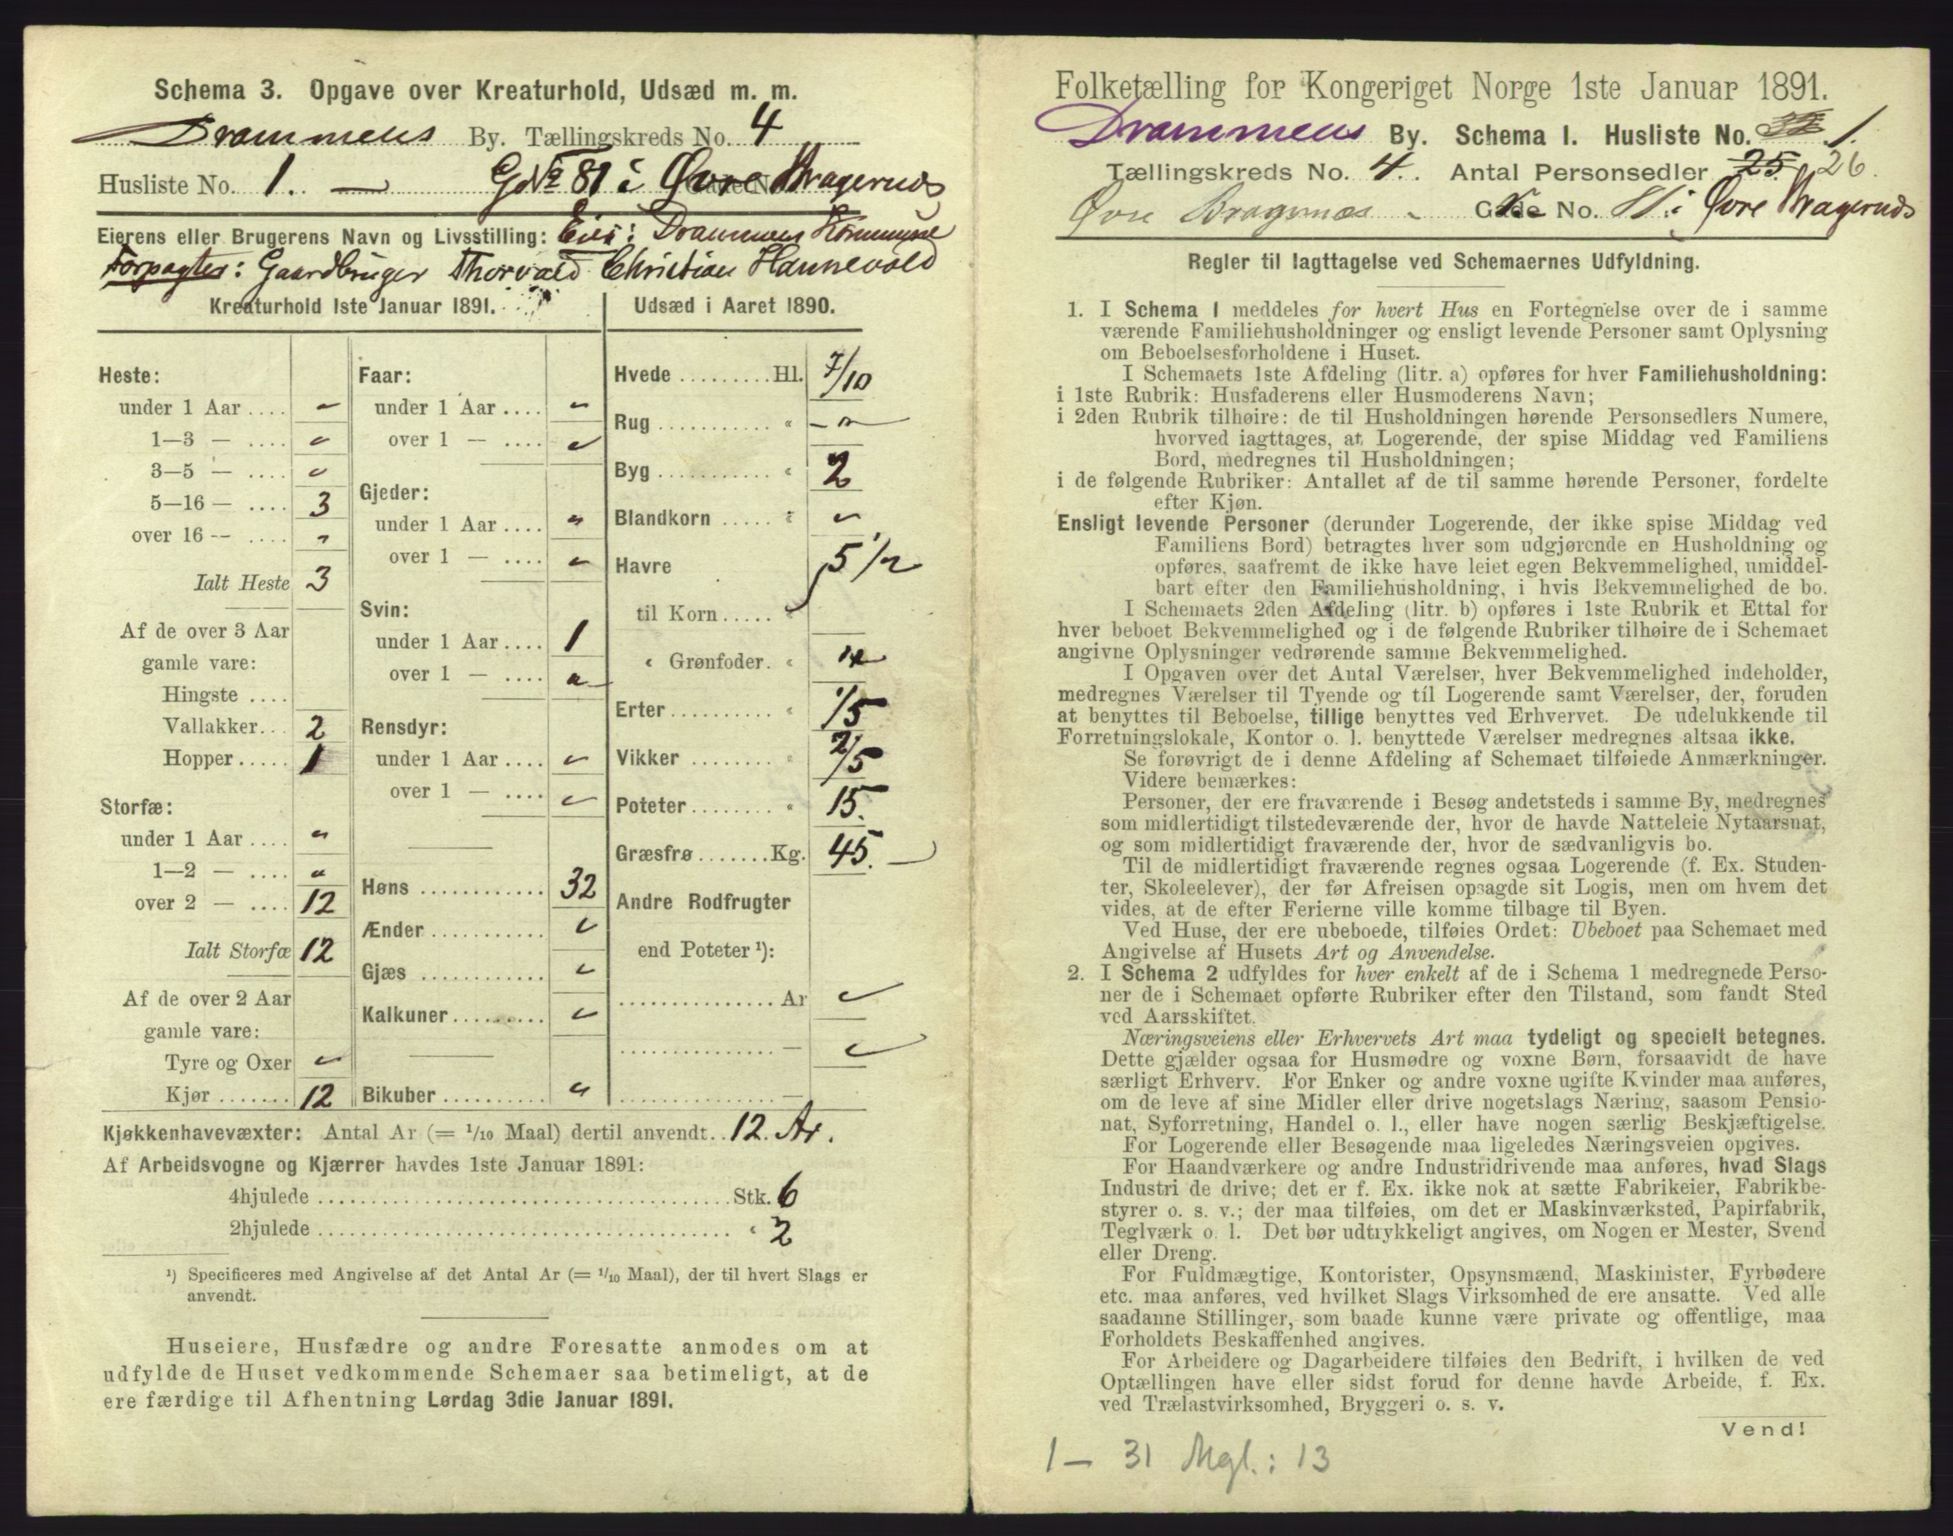 Schema 3. Opgave over Kreaturhold, Udsæd m. m.
Drammens By. Tællingskreds No. 4
Husliste No. 1. — GNo 81 i Øvre Bragernæs
Eierens eller Brugerens Navn og Livsstilling: Eier: Drammens Kommune
Forpagter: Gaardbruger Thorvald Christian Hannevold
Kreaturhold 1ste Januar 1891.
Heste:
under 1 Aar .... "
1—3 — .... "
3—5 — .... "
5—16 — .... 3
over 16 — .... "
Ialt Heste 3
Af de over 3 Aar
gamle vare:
Hingste ....
Vallakker... 2
Hopper..... 1
Storfæ:
under 1 Aar .... "
1—2 — .... "
over 2 — .... 12
Ialt Storfæ 12
Af de over 2 Aar
gamle vare:
Tyre og Oxer "
Kjør ....... 12
Faar:
under 1 Aar .... "
over 1 — .... "
Gjeder:
under 1 Aar .... "
over 1 — .... "
Svin:
under 1 Aar.... 1
over 1 — .... "
Rensdyr:
under 1 Aar .... "
over 1 — .... "
Høns ............ 32
Ænder........... "
Gjæs ............ "
Kalkuner......... "
Bikuber.......... "
Udsæd i Aaret 1890.
Hvede .........Hl. 7/10
Rug ........... " "
Byg ........... " 2
Blandkorn ..... " "
Havre
til Korn..... " 5 1/2
" Grønfoder. " "
Erter.......... " 1/5
Vikker ........ " 2/5
Poteter........ " 15.
Græsfrø .......Kg. 45.
Andre Rodfrugter
end Poteter ¹):
...............Ar "
............... — "
............... —
Kjøkkenhavevæxter: Antal Ar (= 1/10 Maal) dertil anvendt.. 12. Ar.
Af Arbeidsvogne og Kjærrer havdes 1ste Januar 1891:
4hjulede .......................................Stk. 6
2hjulede ....................................... " 2
¹) Specificeres med Angivelse af det Antal Ar (= 1/10 Maal), der til hvert Slags er
anvendt.
Huseiere, Husfædre og andre Foresatte anmodes om at
udfylde de Huset vedkommende Schemaer saa betimeligt, at de
ere færdige til Afhentning Lørdag 3die Januar 1891.
Folketælling for Kongeriget Norge 1ste Januar 1891.
Drammens By. Schema 1. Husliste No. 1.
Tællingskreds No. 4. Antal Personsedler 25. 26.
Øvre Bragernæs - Gade No. 81 i Øvre Bragernæs
Regler til Iagttagelse ved Schemaernes Udfyldning.
1. I Schema 1 meddeles for hvert Hus en Fortegnelse over de i samme
værende Familiehusholdninger og ensligt levende Personer samt Oplysning
om Beboelsesforholdene i Huset.
I Schemaets 1ste Afdeling (litr. a) opføres for hver Familiehusholdning:
i 1ste Rubrik: Husfaderens eller Husmoderens Navn;
i 2den Rubrik tilhøire: de til Husholdningen hørende Personsedlers Numere,
hvorved iagttages, at Logerende, der spise Middag ved Familiens
Bord, medregnes til Husholdningen;
i de følgende Rubriker: Antallet af de til samme hørende Personer, fordelte
efter Kjøn.
Ensligt levende Personer (derunder Logerende, der ikke spise Middag ved
Familiens Bord) betragtes hver som udgjørende en Husholdning og
opføres, saafremt de ikke have leiet egen Bekvemmelighed, umiddel-
bart efter den Familiehusholdning, i hvis Bekvemmelighed de bo.
I Schemaets 2den Afdeling (litr. b) opføres i 1ste Rubrik et Ettal for
hver beboet Bekvemmelighed og i de følgende Rubriker tilhøire de i Schemaet
angivne Oplysninger vedrørende samme Bekvemmelighed.
I Opgaven over det Antal Værelser, hver Bekvemmelighed indeholder,
medregnes Værelser til Tyende og til Logerende samt Værelser, der, foruden
at benyttes til Beboelse, tillige benyttes ved Erhvervet. De udelukkende til
Forretningslokale, Kontor o. l. benyttede Værelser medregnes altsaa ikke.
Se forøvrigt de i denne Afdeling af Schemaet tilføiede Anmærkninger.
Videre bemærkes:
Personer, der ere fraværende i Besøg andetsteds i samme By, medregnes
som midlertidigt tilstedeværende der, hvor de havde Natteleie Nytaarsnat,
og som midlertidigt fraværende der, hvor de sædvanligvis bo.
Til de midlertidigt fraværende regnes ogsaa Logerende (f. Ex. Studen-
ter, Skoleelever), der før Afreisen opsagde sit Logis, men om hvem det
vides, at de efter Ferierne ville komme tilbage til Byen.
Ved Huse, der ere ubeboede, tilføies Ordet: Ubeboet paa Schemaet med
Angivelse af Husets Art og Anvendelse.
2. I Schema 2 udfyldes for hver enkelt af de i Schema 1 medregnede Perso-
ner de i Schemaet opførte Rubriker efter den Tilstand, som fandt Sted
ved Aarsskiftet.
Næringsveiens eller Erhvervets Art maa tydeligt og specielt betegnes.
Dette gjælder ogsaa for Husmødre og voxne Børn, forsaavidt de have
særligt Erhverv. For Enker og andre voxne ugifte Kvinder maa anføres,
om de leve af sine Midler eller drive nogetslags Næring, saasom Pensio-
nat, Syforretning, Handel o. l., eller have nogen særlig Beskjæftigelse.
For Logerende eller Besøgende maa ligeledes Næringsveien opgives.
For Haandværkere og andre Industridrivende maa anføres, hvad Slags
Industri de drive; det er f. Ex. ikke nok at sætte Fabrikeier, Fabrikbe-
styrer o. s. v.; der maa tilføies, om det er Maskinværksted, Papirfabrik,
Teglværk o. l. Det bør udtrykkeligt angives, om Nogen er Mester, Svend
eller Dreng.
For Fuldmægtige, Kontorister, Opsynsmænd, Maskinister, Fyrbødere
etc. maa anføres, ved hvilket Slags Virksomhed de ere ansatte. Ved alle
saadanne Stillinger, som baade kunne være private og offentlige, maa
Forholdets Beskaffenhed angives.
For Arbeidere og Dagarbeidere tilføies den Bedrift, i hvilken de ved
Optællingen have eller sidst forud for denne havde Arbeide, f. Ex.
ved Trælastvirksomhed, Bryggeri o. s. v.
Vend!
1 — 31 Mgl.: 13